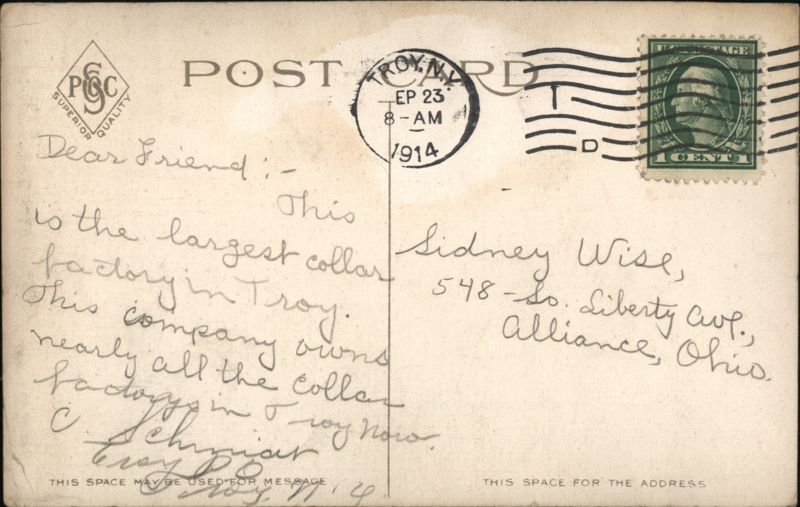 PSGC
SUPERIOR QUALITY
POST CARD
TROY, N.Y.
EP 23
8-AM
1914
D
U.S. POSTAGE
1 CENT 1
Dear Friend:-
This
is the largest collar
factory in Troy.
This company owns
nearly all the collar
factorys in Troy now.
C. Schmidt
Troy, N.Y.
THIS SPACE MAY BE USED FOR MESSAGE
Sidney Wise,
548-So. Liberty Ave.,
Alliance, Ohio.
THIS SPACE FOR THE ADDRESS